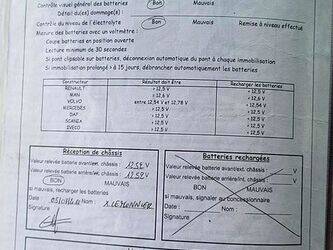 Contrôle visuel général des batteries Bon Mauvais
Détail du(es) dommage(s)
Contrôle du niveau de l'électrolyte Bon Mauvais Remise à niveau effectué
Mesure des batteries avec un voltmètre :
Coupe batteries en position ouverte
Lecture minimum de 30 secondes
Si pont clipsable sur batteries, déconnexion automatique du pont à chaque immobilisation
Si immobilisation prolongé > à 15 jours, débrancher automatiquement les batteries
Constructeur Résultat doit être Recharger les batteries
RENAULT > 12,5 V < 12,5 V
MAN > 12,6 V < 12,6 V
VOLVO entre 12,54 V et 12,78 V < 12,54 V
MERCEDES > 12,5 V < 12,5 V
DAF > 12,5 V < 12,5 V
SCANIA > 12,5 V < 12,5 V
IVECO > 12,5 V < 12,5 V
Réception de châssis
Valeur relevée batterie avant/ext. châssis V
Valeur relevée batterie arrière/int. châssis V
BON MAUVAIS
si mauvais, recharger les batteries
Date : Nom : X LEMONNIER
Signature
Batteries rechargées
Valeur relevée batterie avant/ext. châssis
Valeur relevée batterie arrière/int. châssis
BON MAUVAIS
si mauvais, signaler au concessionnaire
Date : Nom :
Signature